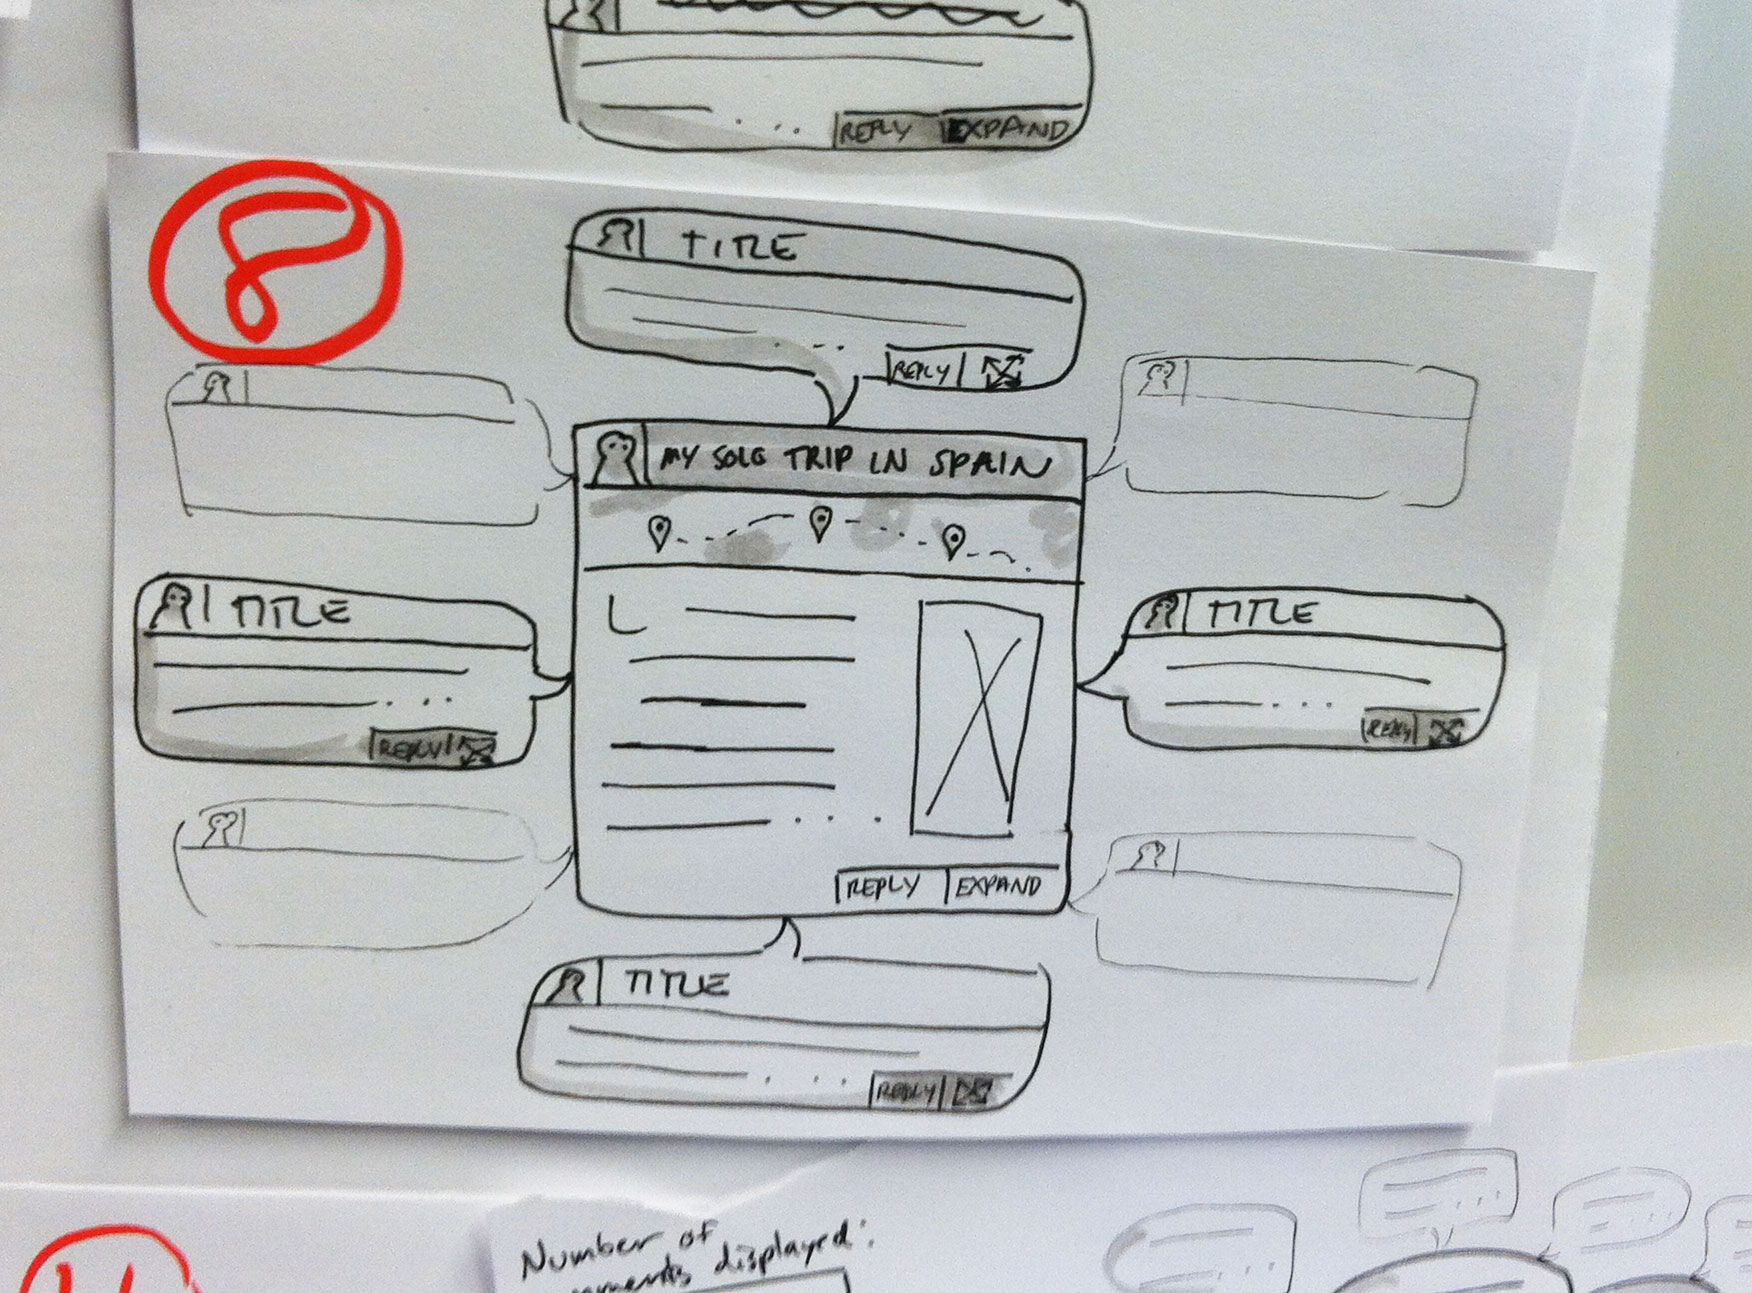 REPLY EXPAND
8
TITLE
REPLY
MY SOLO TRIP IN SPAIN
TITLE
REPLY
TITLE
REPLY
REPLY EXPAND
TITLE
REPLY
Number of
displayed: